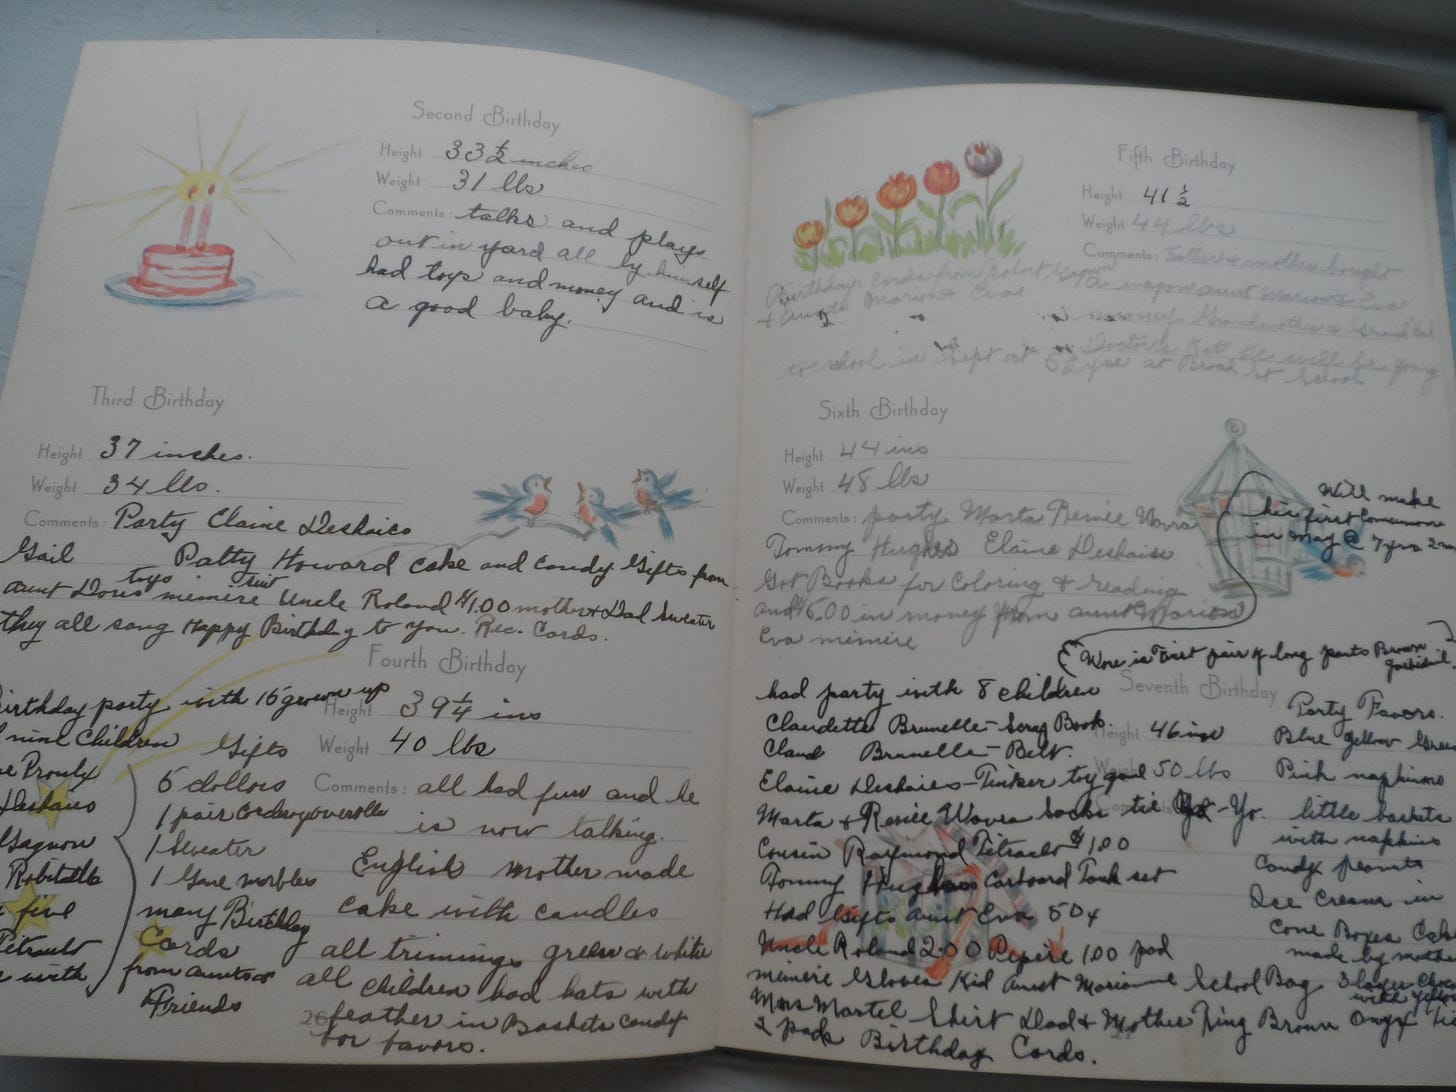 Second Birthday
Height 33 1/2 inches
Weight 31 lbs
Comments: talks and plays
out in yard all by himself
had toys and money and is
a good baby.
Third Birthday
Height 37 inches.
Weight 34 lbs.
Comments: Party Elaine Deshaies
Gail Patty Howard cake and candy. Gifts from
aunt Doris toys mimère suit Uncle Roland $1.00 mother & Dad Sweater
they all sang Happy Birthday to You. Rec. Cards.
Fourth Birthday
Height 39 1/4 ins
Weight 40 lbs
Comments: all had fun and he
is now talking.
English mother made
cake with candles
all trimmings green & white
all children had hats with
feather in Baskets candy
for favors.
Birthday party with 15 grown up
nine Children
Proulx
Deshaies
Gagnon
Robitaille
five
Tetrault
with
Gifts
5 dollars
1 pair Corduroy overalls
1 Sweater
1 Game marbles
many Birthday
Cards
from aunts &
Friends
26
Fifth Birthday
Height 41 1/2
Weight 44 lbs
Comments: Father & mother bought
a wagon aunt Marion & Eva
money Grandmother & Grand Dad
Doctor's Kit He will be going
to school in Sept at 5 1/2 yrs at Broad St School
Birthday Cards from Robert Gagnon
& Aunts Marion & Eva
Sixth Birthday
Height 44 ins
Weight 48 lbs
Comments: party Marta Renée Wavra
Tommy Hughes Elaine Deshaies
Got Books for Coloring & reading
and $6.00 in money from aunt Marion
Eva mimère
Will make
his first Communion
in May @ 7 yrs 2 m
Wore is First pair of long pants Brown
gabardine
Seventh Birthday
Height 46 ins
Weight 50 lbs
Comments
had party with 8 children
Claudette Brunelle - Scrap Book.
Claud Brunelle - Belt.
Elaine Deshaies - Tinker toy
Marta & Renée Wavra Socks tie Yo-Yo.
Cousin Raymond Tetrault $1.00
Tommy Hughes Carboard Tank set
Had Gifts Aunt Eva 50¢
Uncle Roland 2.00 Pepère 1.00
mimère Gloves Kid Aunt Marion School Bag
Mrs Martel Shirt Dad & Mother Ring Brown Onyx
2 pack Birthday Cards.
Party Favors.
Blue yellow Green
Pink napkins
little baskets
with napkins
Candy peanuts
Ice Cream in
Cone Boxes Cake
made by mother
3 layer
with
27